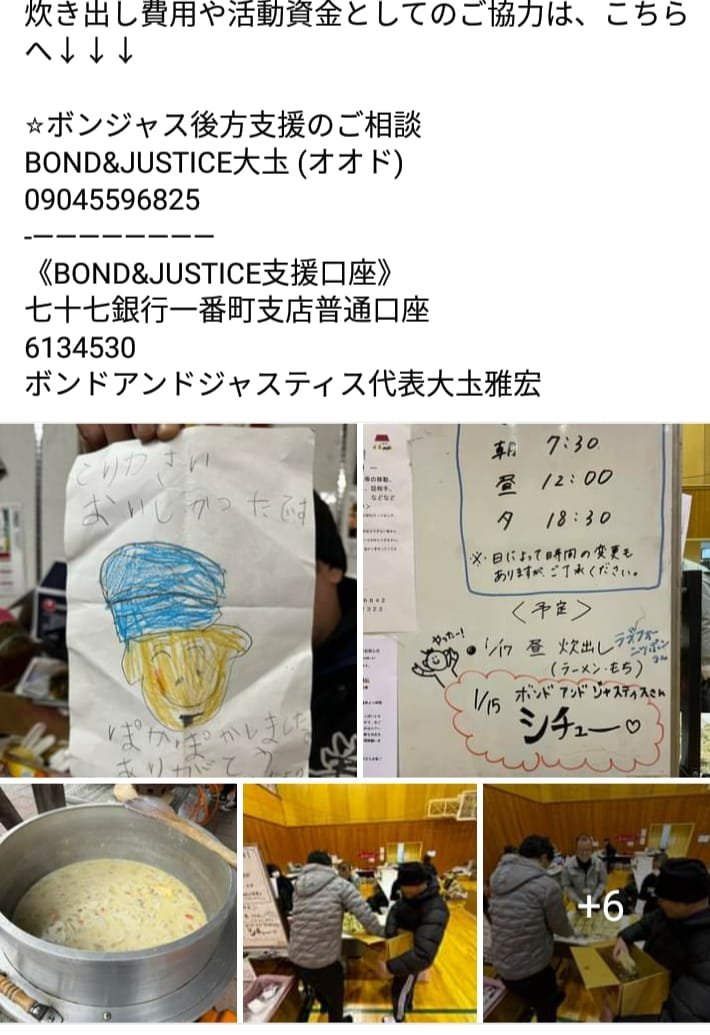 炊き出し費用や活動資金としてのご協力は、こちら
へ↓↓↓
☆ボンジャス後方支援のご相談
BOND&JUSTICE大圡 (オオド)
09045596825
-————————
《BOND&JUSTICE支援口座》
七十七銀行一番町支店普通口座
6134530
ボンドアンドジャスティス代表大圡雅宏
おいしかったです
ぽかぽかしました
ありがとう
朝 7:30
昼 12:00
夕 18:30
※日によって時間の変更も
ありますが、ご了承ください。
〈予定〉
やったー!
• 1/17 昼 炊出し
(ラーメン・もち)
1/15 ボンドアンドジャスティスさん
シチュー♡
+6